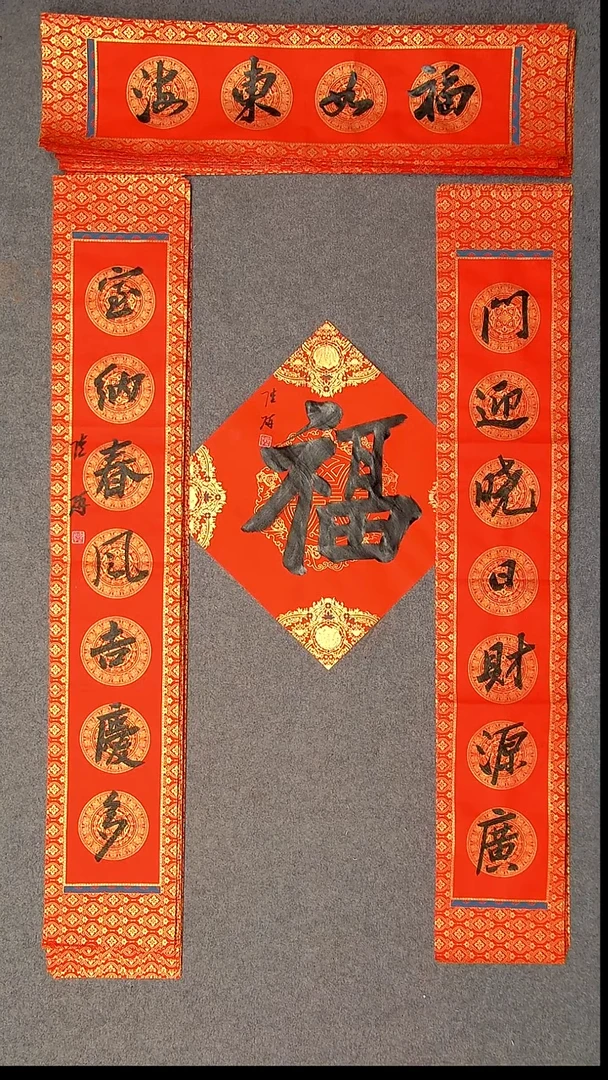 福如東海
門迎曉日財源廣
室納春風吉慶多
福